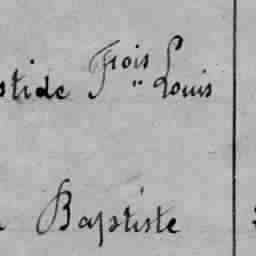 stide Frois Louis
Baptiste